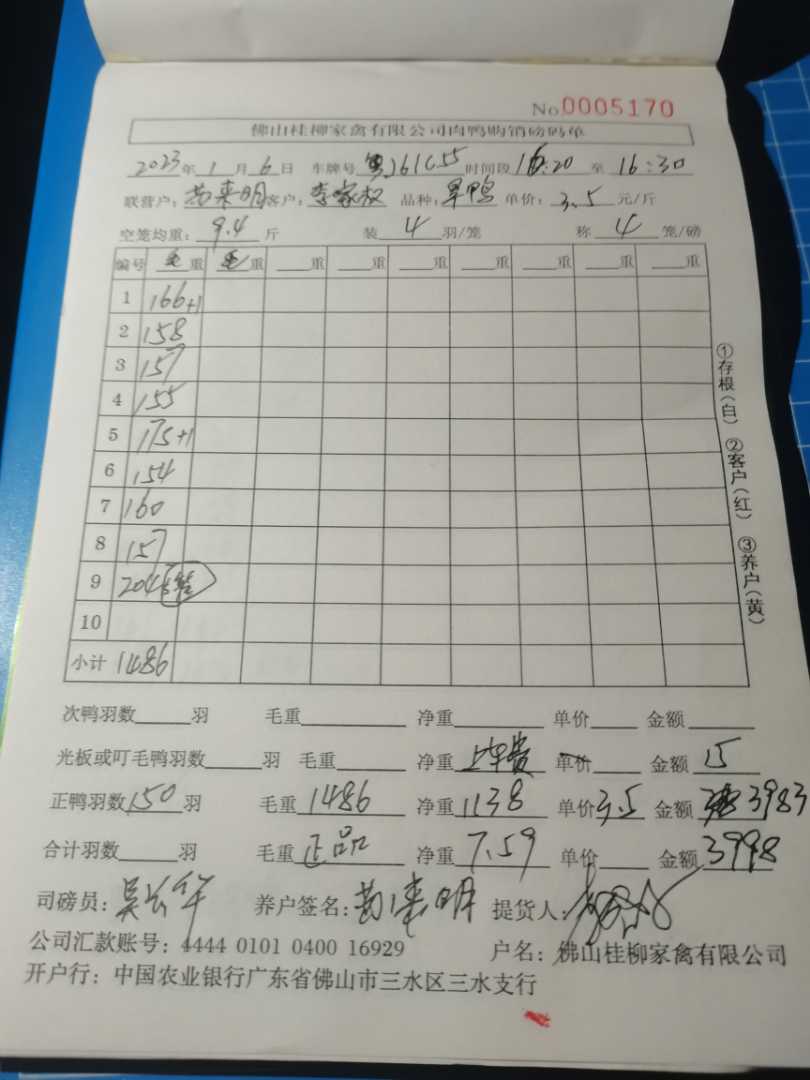 No 0005170
佛山桂柳家禽有限公司肉鸭购销磅码单
2023年1月6日 车牌号 粤J61C55 时间段 16:20 至 16:30
联营户:黄来明 客户:李家权 品种:旱鸭 单价:3.5元/斤
空笼均重:9.4斤 装4羽/笼 称4笼/磅
编号 毛重 毛重 重 重 重 重 重 重 重
1 166+1
2 158
3 157
4 155
5 175+1
6 154
7 160
8 157
9 204 5笼
10
小计 1486
①存根(白) ②客户(红) ③养户(黄)
次鸭羽数 羽 毛重 净重 单价 金额
光板或叮毛鸭羽数 羽 毛重 净重 上车费 单价 金额 15
正鸭羽数150羽 毛重1486 净重1138 单价3.5 金额 3983
合计羽数 羽 毛重 正品 净重 7.59 单价 金额 3998
司磅员: 养户签名:黄来明 提货人:
公司汇款账号:4444 0101 0400 16929 户名:佛山桂柳家禽有限公司
开户行:中国农业银行广东省佛山市三水区三水支行